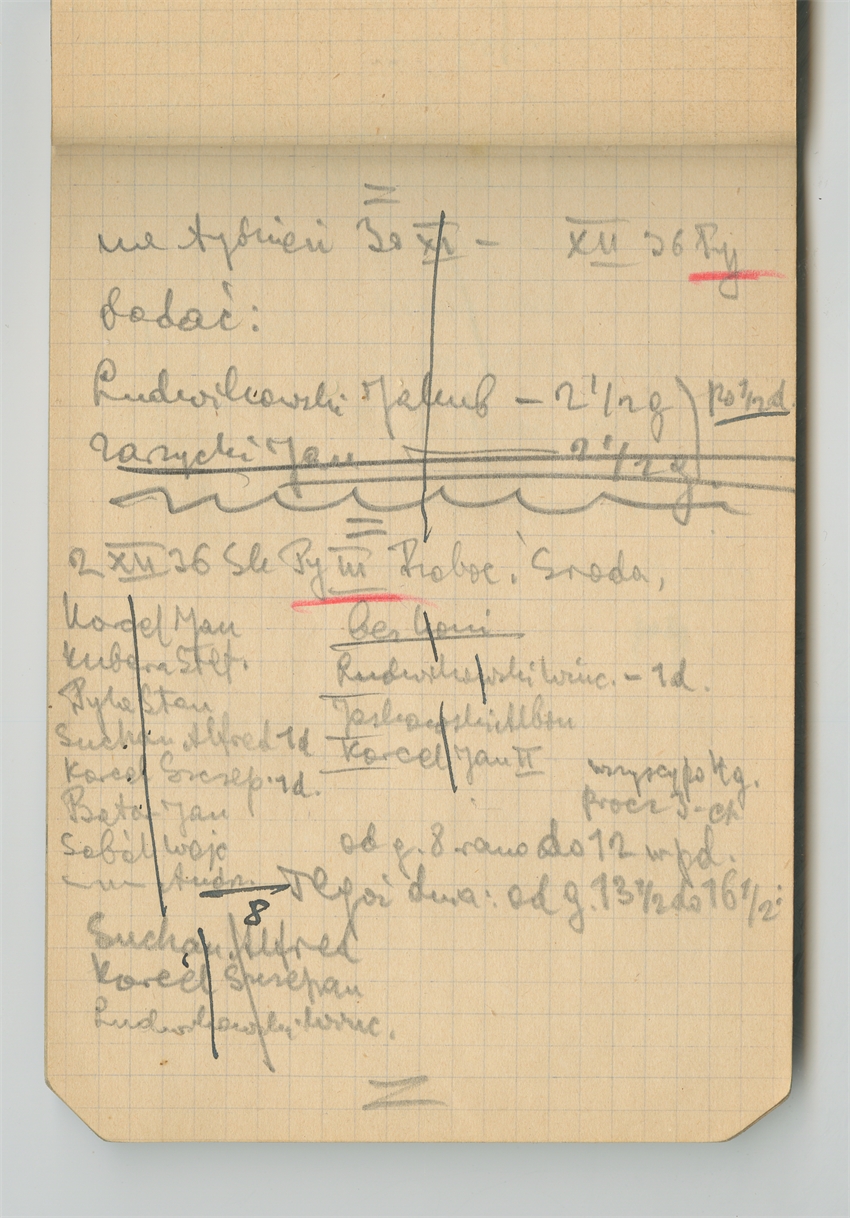 na tydzień 30 XI - XII 36 Py
dodać:
Ludwikowski Jakub - 2 1/2 g
po 1/2 d.
Zarzycki Jan - 2 1/2 g
2 XII 36 Sk Py III Roboc. Sroda,
Korcel Jan
Kubera Stef.
Pyla Stan
Suchan Alfred 1d
Korcel Szczep. 1d.
Bator Jan
Soból Wojc
-"- Andr.
8
bez koni
Ludwikowski Winc. - 1d.
Jaskowski Albin
Korcel Jan II
wszyscy po 4 g.
prócz 3-ch
od g. 8 rano do 12 w pd.
Tegoż dnia: od g. 13 1/2 do 16 1/2:
Suchan Alfred
Korcel Szczepan
Ludwikowski Winc.